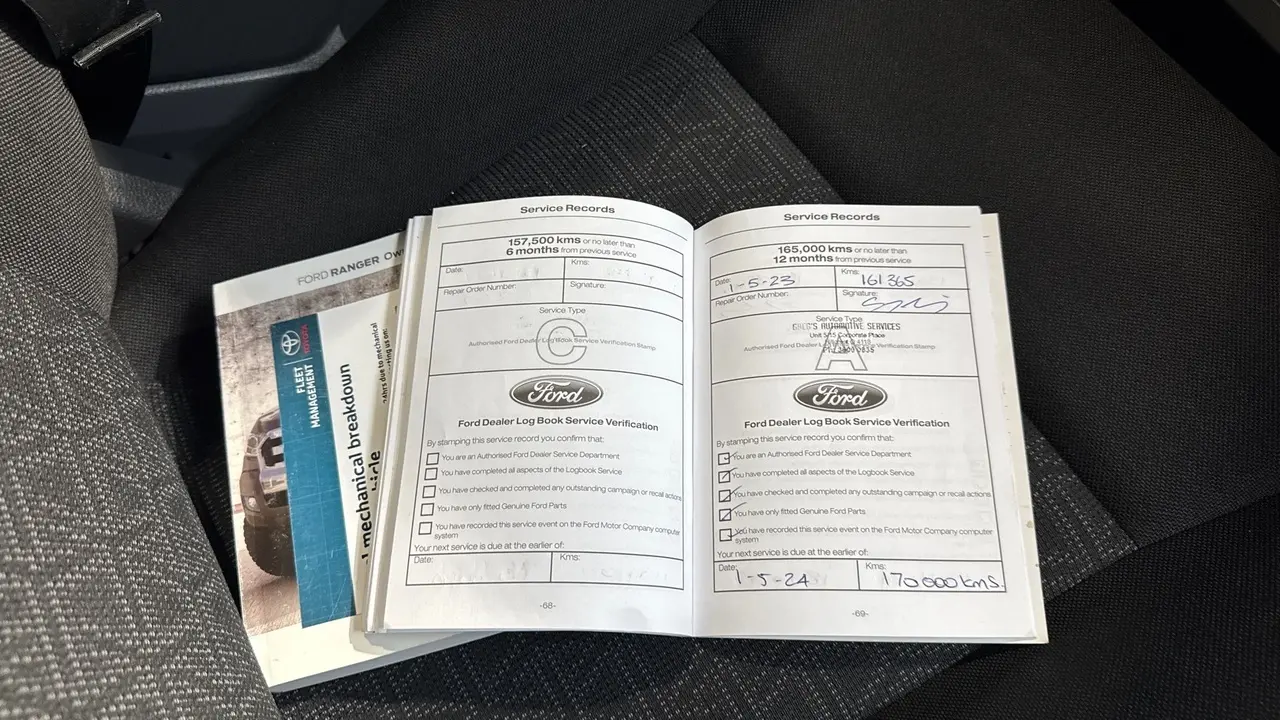 FORD RANGER
TOYOTA
FLEET
MANAGEMENT
mechanical breakdown
Service Records
157,500 kms or no later than
6 months from previous service
Date:
Kms:
Repair Order Number:
Signature:
Service Type
C
Authorised Ford Dealer Log Book Service Verification Stamp
Ford
Ford Dealer Log Book Service Verification
By stamping this service record you confirm that:
You are an Authorised Ford Dealer Service Department
You have completed all aspects of the Logbook Service
You have checked and completed any outstanding campaign or recall actions
You have only fitted Genuine Ford Parts
You have recorded this service event on the Ford Motor Company computer
system
Your next service is due at the earlier of:
Date:
Kms:
-68-
Service Records
165,000 kms or no later than
12 months from previous service
Date: 1-5-23
Kms: 161365
Repair Order Number:
Signature:
Service Type
AUTOMOTIVE SERVICES
Unit 5/15 Corporate Place
A
Authorised Ford Dealer Service Verification Stamp
Ford
Ford Dealer Log Book Service Verification
By stamping this service record you confirm that:
You are an Authorised Ford Dealer Service Department
You have completed all aspects of the Logbook Service
You have checked and completed any outstanding campaign or recal actions
You have only fitted Genuine Ford Parts
You have recorded this service event on the Ford Motor Company computer
system
Your next service is due at the earlier of:
Date: 1-5-24
Kms: 170000kms.
-69-